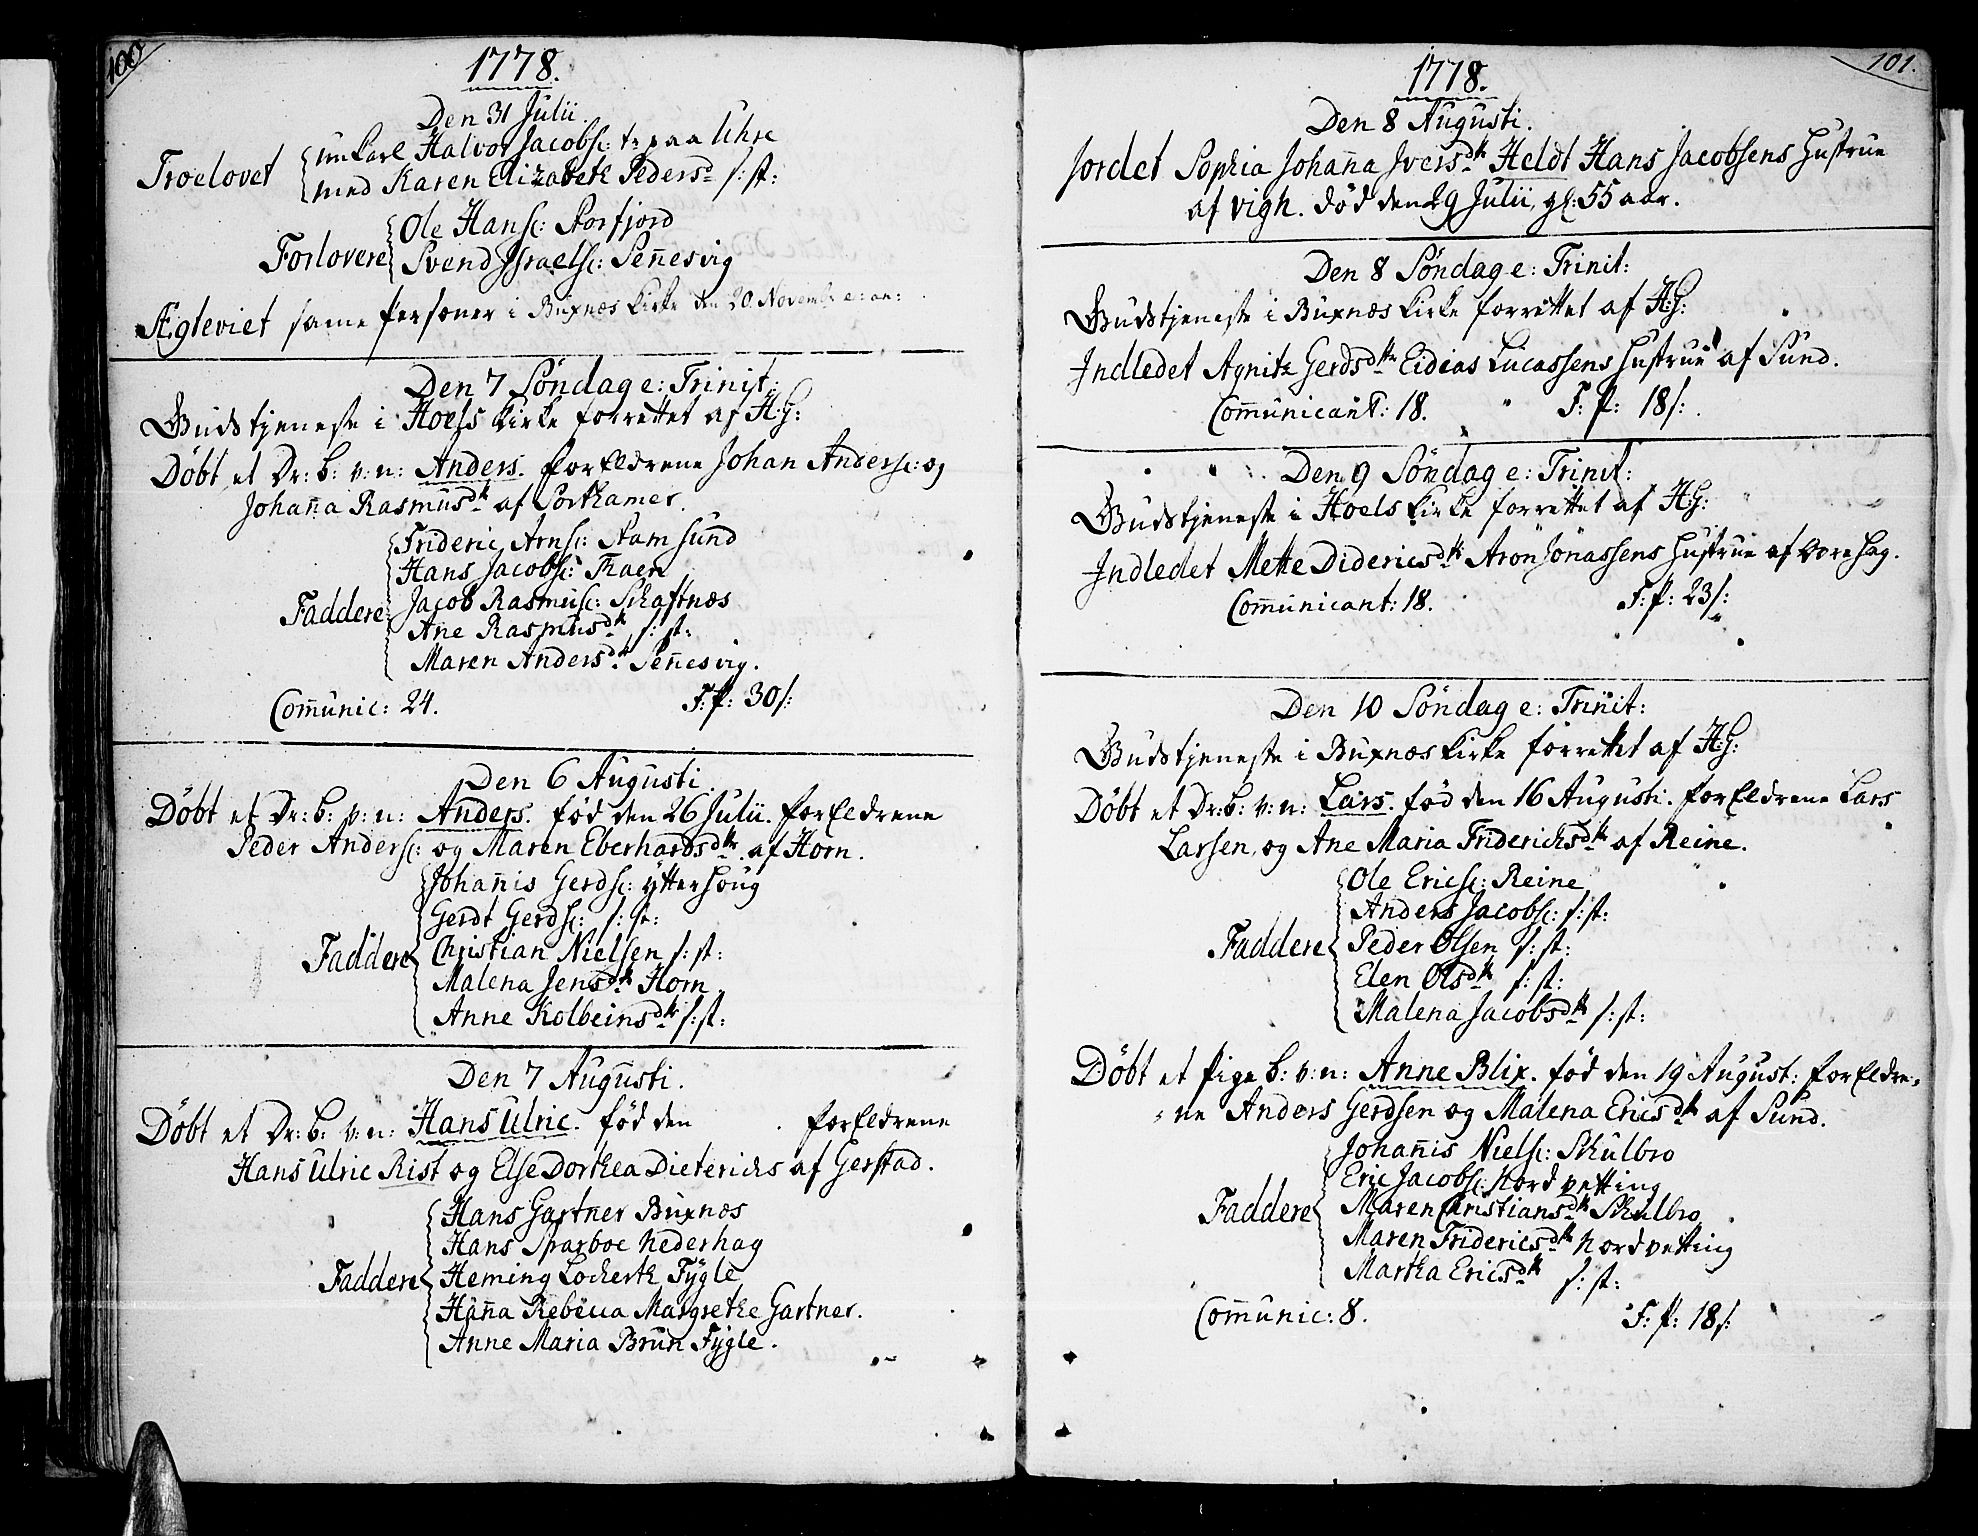 100
1778.
Den 31 Julii.
Troelovet ungkarl Halvor Jacobs: tr: paa Uhre
med Karen Elizabeth Pedersd s: st:
Forlovere Ole Hans: Storfjord
Svend Israels: Sennesvig
Ægteviet same personer i Buxnæs kirke den 20 Novembr e: an:
Den 7 Søndag e: Trinit:
Gudstjeneste i Hoels kirke forrettet af H:G:
Döbt et Dr: b: v: n: Anders. forEldrene Johan Anders: og
Johanna Rasmusdtr af Sortkamer.
Frideric Arns: Stamsund
Hans Jacobs: Thaen
Faddere Jacob Rasmus: Schaftnæs
Ane Rasmusdtr s: st:
Maren Andersdtr Sennesvig.
Communic: 24. T: p: 30 s:
Den 6 Augusti.
Döbt et Dr: b: v: n: Anders. fød den 26 Julii. forEldrene
Peder Anders: og Maren Eberhardsdtr af Horn.
Johannis Gerds: yttershoug
Gerdt Gerds: s: st:
Faddere Christian Nielsen s: st:
Malena Jensdtr Horn
Anne Kolbeinsdtr s: st:
Den 7 Augusti.
Döbt et Dr: b: v: n: Hans Ulric. fød den . forEldrene
Hans Ulric Rist og Else Dorthea Dieterichs af Gerstad.
Hans Gartner Buxnæs
Hans Sparboe Nederhag
Faddere Heming Lockerth Fÿgle
Hanna Rebecca Margrethe Gartner.
Anne Maria Brun Fÿgle.
101.
1778.
Den 8 Augusti.
Jordet Sophia Johanna Iversdtr Heldt Hans Jacobsens Hustrue
af vigh. død den 29 Julii, gl: 55 aar.
Den 8 Søndag e: Trinit:
Gudstjeneste i Buxnæs kirke forrettet af H:G:
Indledet Agnitz Gerdsdtr Eidias Lucassens Hustrue af Sund.
Communicant: 18. T: p: 18 s:
Den 9 Søndag e: Trinit:
Gudstjeneste i Hoels kirke forrettet af H:G:
Indledet Mette Didericsdtr Aron Jonassens Hustrue af Orehag.
Communicant: 18. T: p: 23 s:
Den 10 Søndag e: Trinit:
Gudstjeneste i Buxnæs kirke forrettet af H:G:
Döbt et Dr: b: v: n: Lars. fød den 16 Augusti. forEldrene Lars
Larsen, og Ane Maria Friderichsdtr af Reine.
Ole Erics: Reine
Anders Jacobs: s: st:
Faddere Peder Olsen s: st:
Elen Olsdtr s: st:
Malena Jacobsdtr s: st:
Döbt et pige b: v: n: Anne Blix. fød den 19 August: forEldre-
ne Anders Gerdsen og Malena Ericsdtr af Sund.
Johannis Niels: Skulbro
Eric Jacobs: Nordpetting
Faddere Maren Christiansdtr Skulbro
Maren Fridericsdtr Nordpetting
Martha Ericsdtr s: st:
Communic: 8. T: p: 18 s: